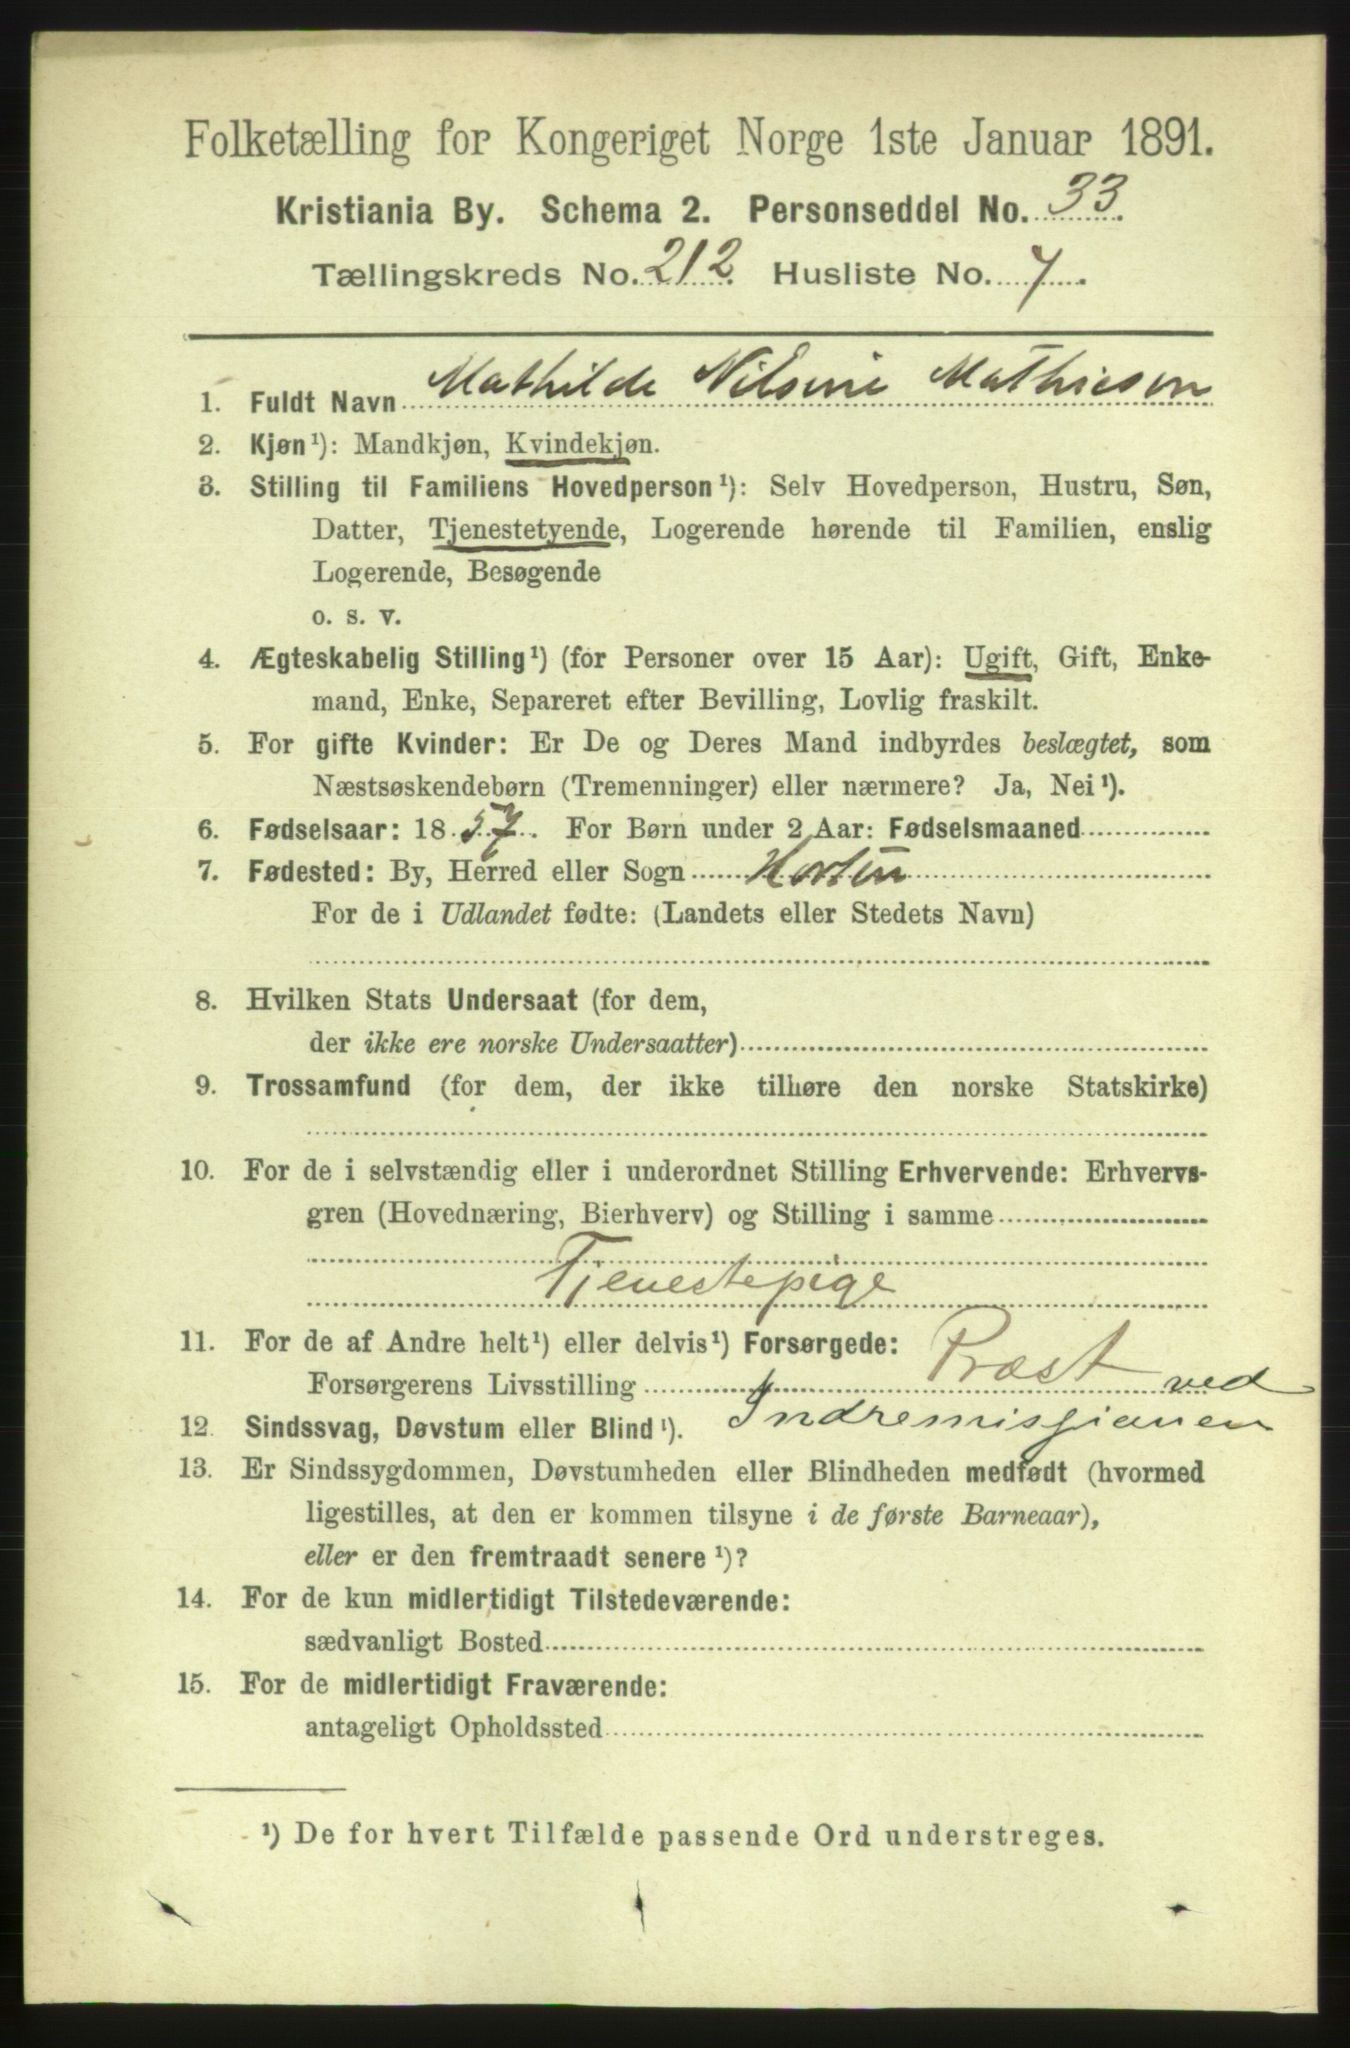 Folketælling for Kongeriget Norge 1ste Januar 1891.
Kristiania By. Schema 2. Personseddel No. 33.
Tællingskreds No. 212. Husliste No. 7.
1. Fuldt Navn Mathilde Nilsine Mathiesen
2. Kjøn¹): Mandkjøn, Kvindekjøn.
3. Stilling til Familiens Hovedperson¹): Selv Hovedperson, Hustru, Søn,
Datter, Tjenestetyende, Logerende hørende til Familien, enslig
Logerende, Besøgende
o. s. v.
4. Ægteskabelig Stilling¹) (for Personer over 15 Aar): Ugift, Gift, Enke-
mand, Enke, Separeret efter Bevilling, Lovlig fraskilt.
5. For gifte Kvinder: Er De og Deres Mand indbyrdes beslægtet, som
Næstsøskendebørn (Tremenninger) eller nærmere? Ja, Nei¹).
6. Fødselsaar: 1857. For Børn under 2 Aar: Fødselsmaaned
7. Fødested: By, Herred eller Sogn Horten
For de i Udlandet fødte: (Landets eller Stedets Navn)
8. Hvilken Stats Undersaat (for dem,
der ikke ere norske Undersaatter)
9. Trossamfund (for dem, der ikke tilhøre den norske Statskirke)
10. For de i selvstændig eller i underordnet Stilling Erhvervende: Erhvervs-
gren (Hovednæring, Bierhverv) og Stilling i samme
Tjenestepige
11. For de af Andre helt¹) eller delvis¹) Forsørgede:
Forsørgerens Livsstilling Præst ved
Indremissionen
12. Sindssvag, Døvstum eller Blind¹).
13. Er Sindssygdommen, Døvstumheden eller Blindheden medfødt (hvormed
ligestilles, at den er kommen tilsyne i de første Barneaar),
eller er den fremtraadt senere¹)?
14. For de kun midlertidigt Tilstedeværende:
sædvanligt Bosted
15. For de midlertidigt Fraværende:
antageligt Opholdssted
¹) De for hvert Tilfælde passende Ord understreges.